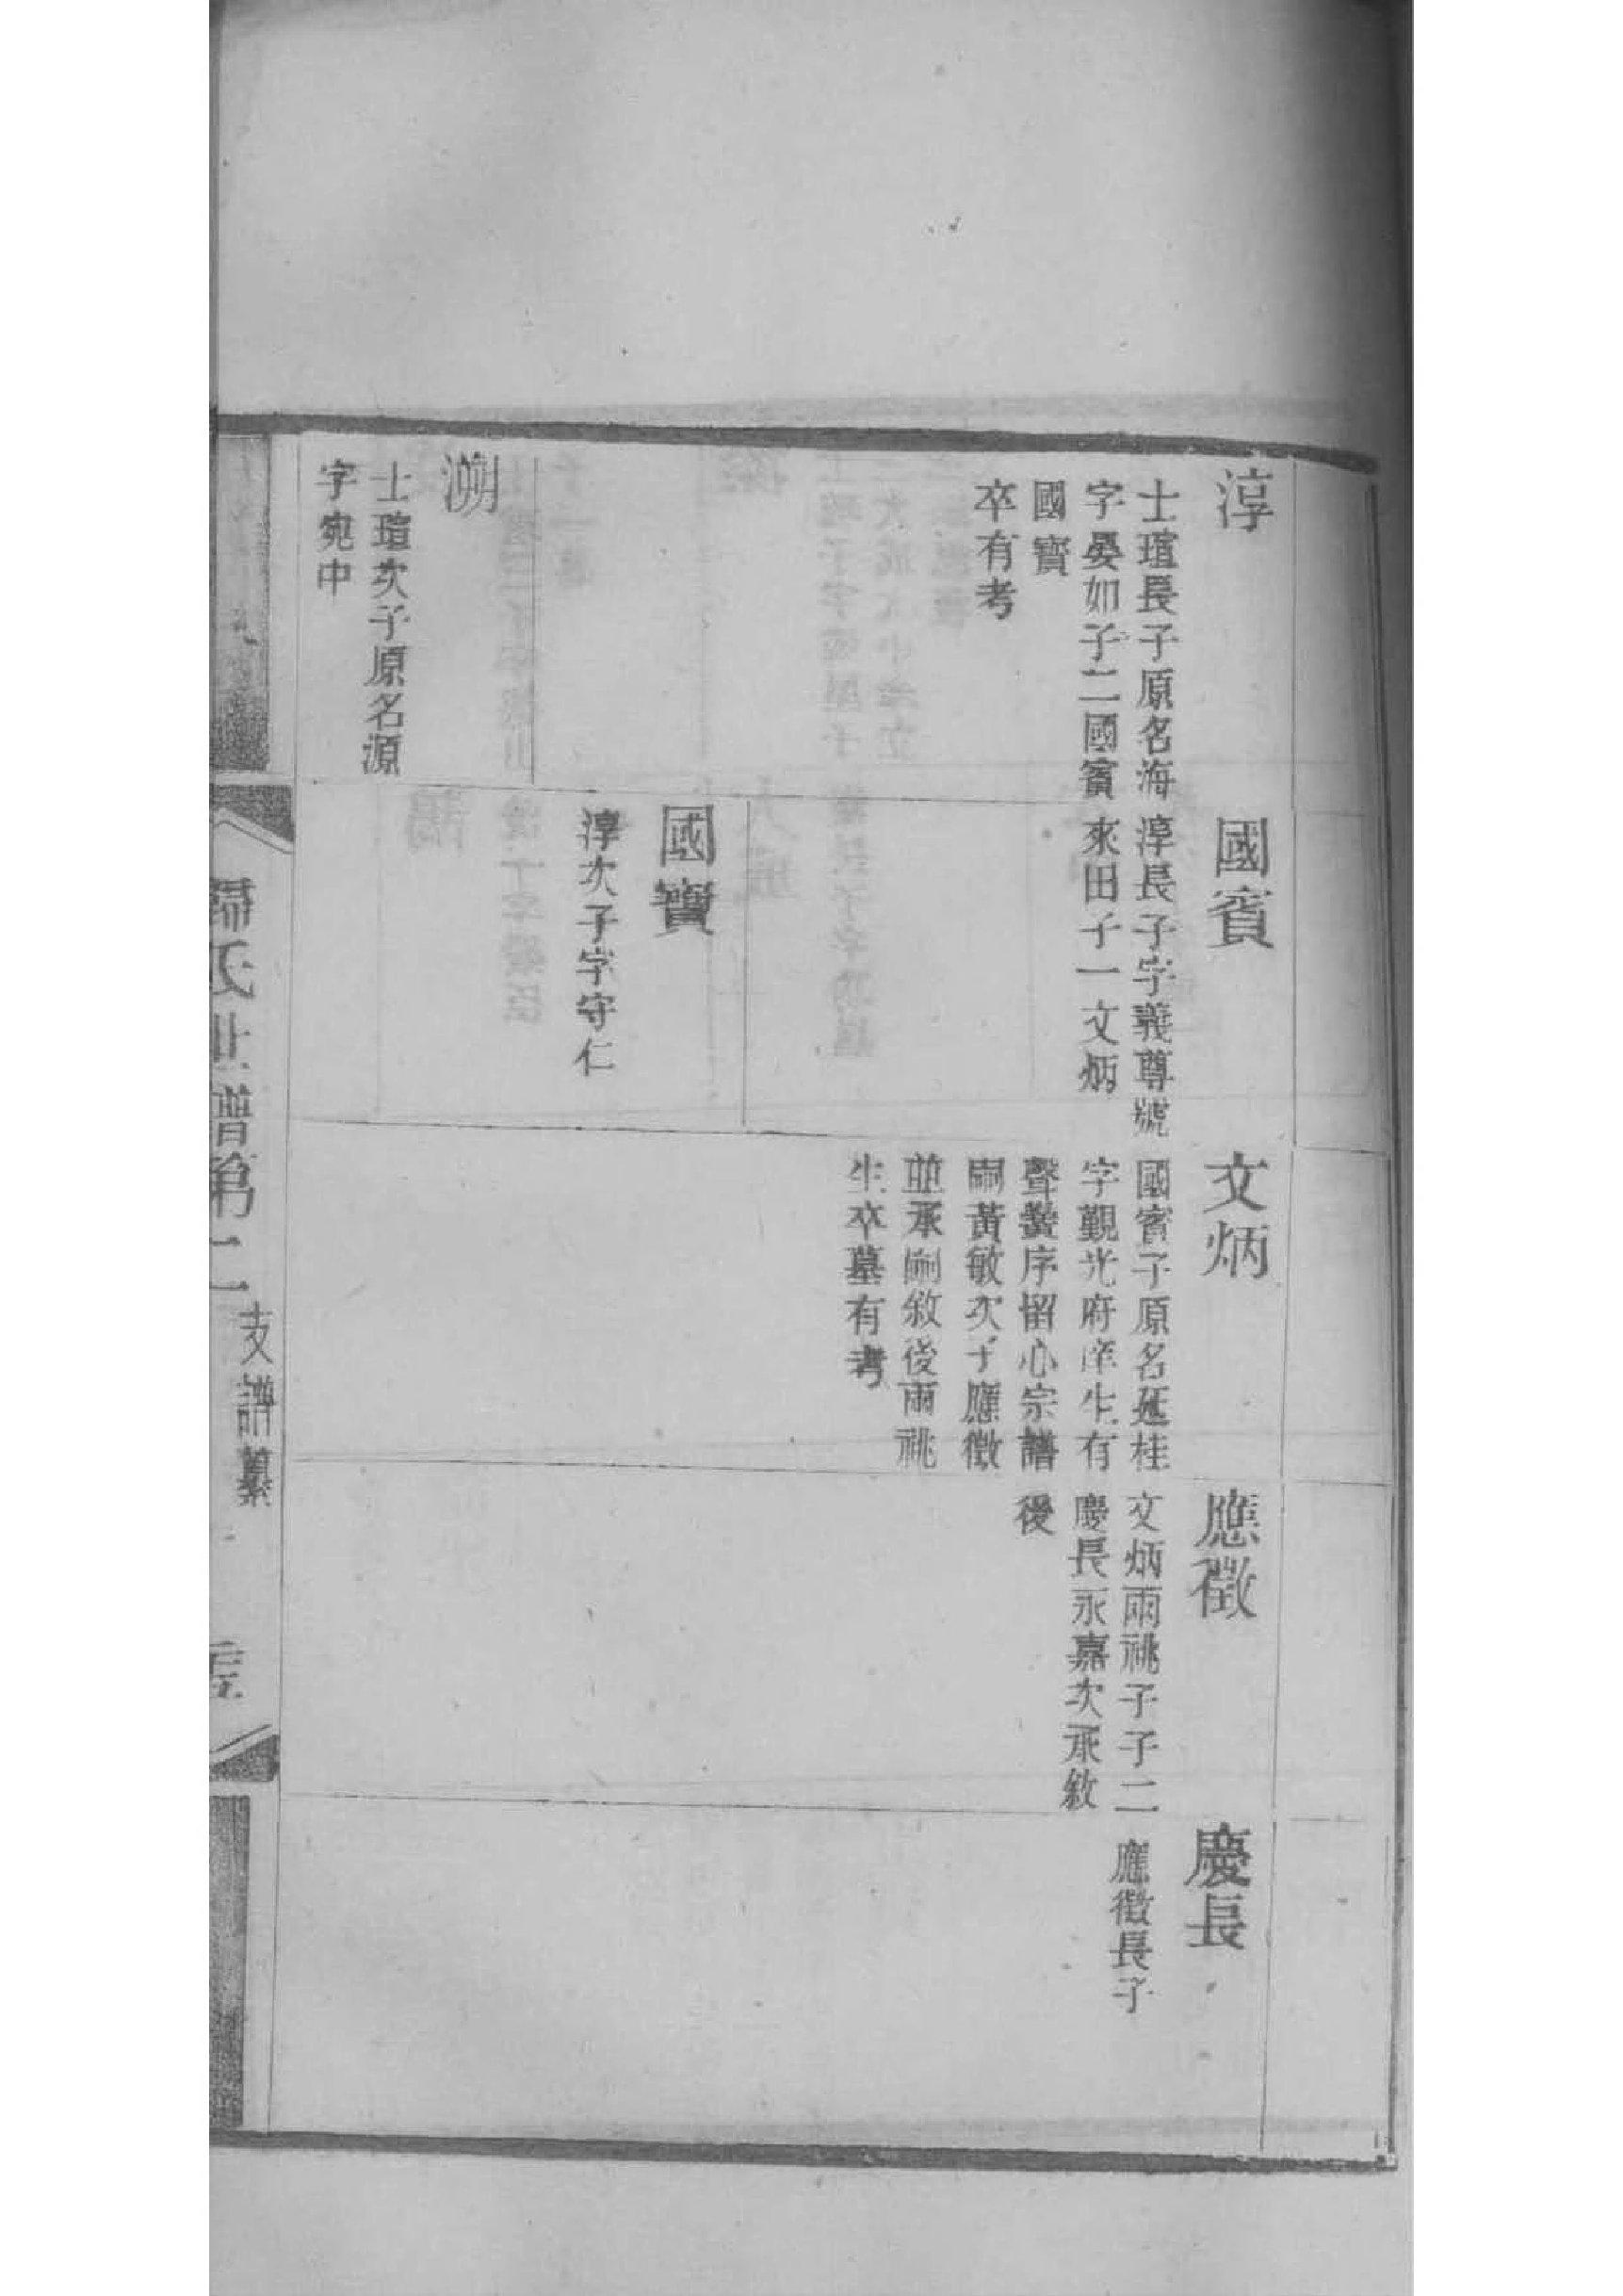 淳
士瑄長子原名海
字晏如子二國賓
國寳
卒有考
溯
士瑄次子原名源
字宛中
國賓
淳長子字義尊號
來田子一文炳
國寳
淳次子字守仁
文炳
國賓子原名延桂
字觀光府庠生有
聲黌序留心宗譜
嗣黃敏次子應徵
並承嗣敘後兩祧
生卒墓有考
應徵
文炳兩祧子子二
慶長永嘉次承敘
後
慶長
應徵長子
歸氏世譜第二
支譜纂